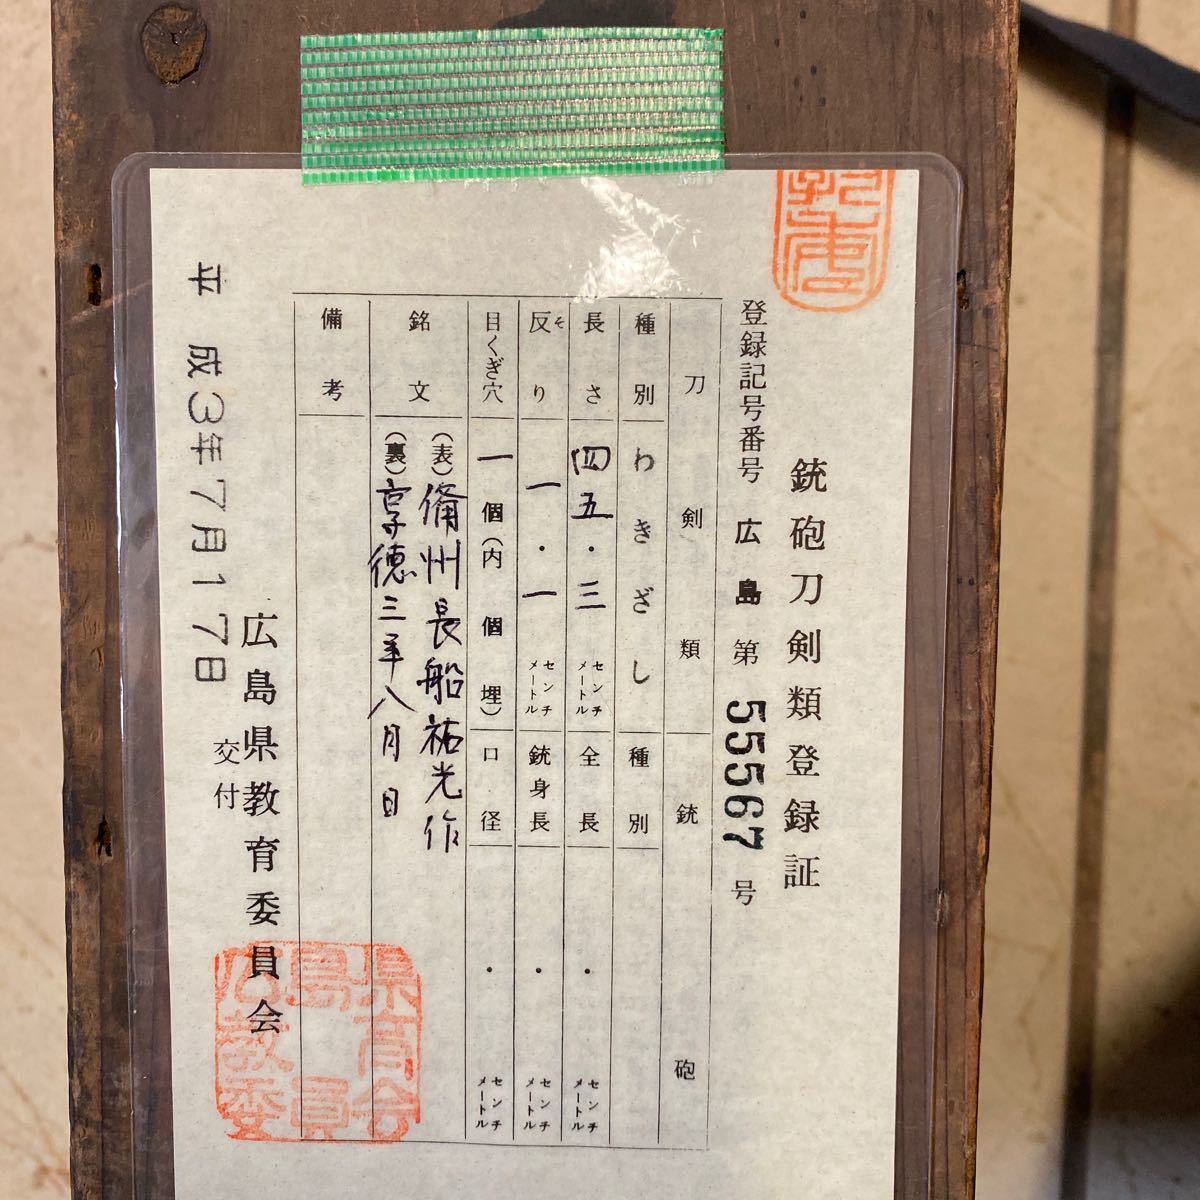 銃砲刀剣類登録証
登録記号番号 広島第 55567 号
刀剣類
種別 わきざし
長さ 四五・三 センチメートル
反り 一・一 センチメートル
そ
目くぎ穴 一個(内 個埋)
銘文 (表)備州長船祐光作
(裏)享徳三年八月日
備考
銃砲
種別
全長 ・ センチメートル
銃身長 ・ センチメートル
口径 ・ センチメートル
平成3年7月17日 交付
広島県教育委員会
広島県教育委員会